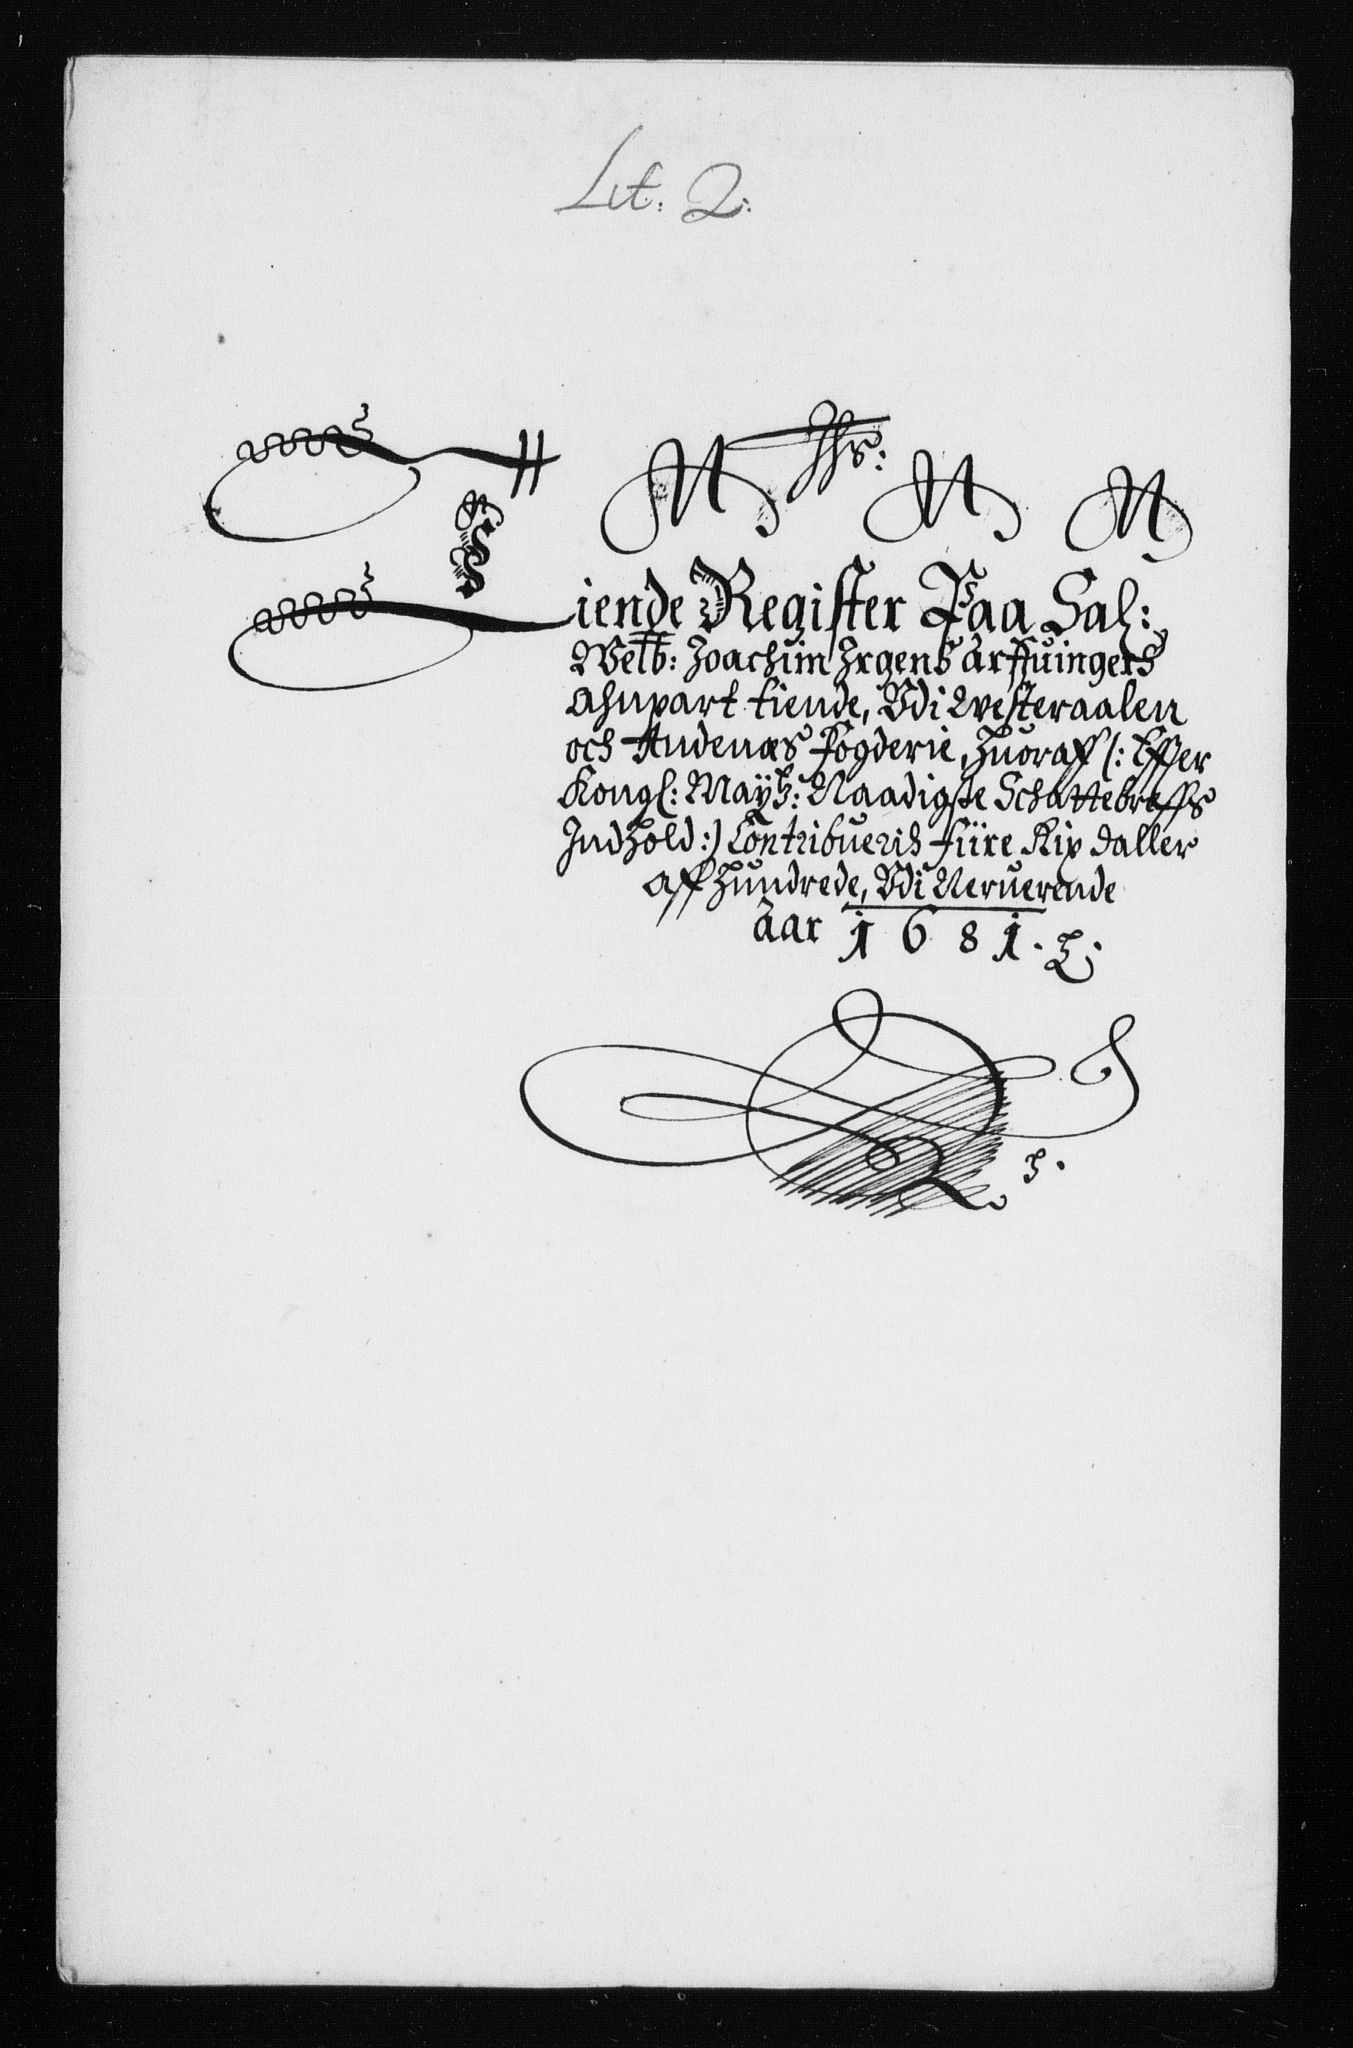 Lit: Q:
Jhs:
Tiende Register Paa Sal:
Welb: Joachim Irgens Arffuingers
Anpart tiende, Vdi Westeraalen
och Andenæs Fogderie, Huoraff (: Effter
Kongl: Mayts: Naadigste Schattebreffs
Indhold :) Contribueris fiire Rix daller
aff Hundrede, Vdi Neruerende
Aar 1681.